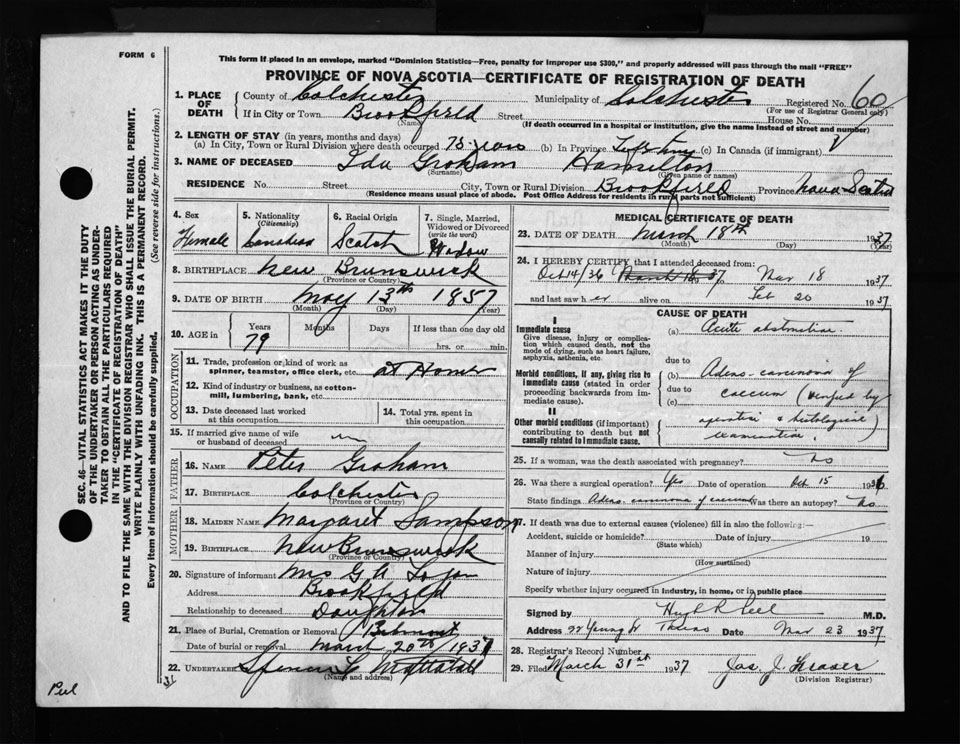 FORM 6
This form if placed in an envelope, marked "Dominion Statistics—Free, penalty for improper use $300," and properly addressed will pass through the mail "FREE"
PROVINCE OF NOVA SCOTIA—CERTIFICATE OF REGISTRATION OF DEATH
1. PLACE OF DEATH County of Colchester Municipality of Colchester Registered No. 60
(For use of Registrar General only)
If in City or Town Brookfield Street House No.
(Name) (If death occurred in a hospital or institution, give the name instead of street and number)
2. LENGTH OF STAY (in years, months and days)
(a) In City, Town or Rural Division where death occurred 75 years (b) In Province Lifetime (c) In Canada (if immigrant)
3. NAME OF DECEASED Ida Graham Hamilton
(Surname) (Given name or names)
RESIDENCE No. Street City, Town or Rural Division Brookfield Province Nova Scotia
(Residence means usual place of abode. Post Office Address for residents in rural parts not sufficient)
4. Sex 5. Nationality (Citizenship) 6. Racial Origin 7. Single, Married, Widowed or Divorced (write the word)
Female Canadian Scotch Widow
8. BIRTHPLACE New Brunswick
(Province or Country)
9. DATE OF BIRTH May 13th 1857
(Month) (Day) (Year)
10. AGE in Years Months Days If less than one day old
79 hrs. or min.
OCCUPATION
11. Trade, profession or kind of work as spinner, teamster, office clerk, etc. at Home
12. Kind of industry or business, as cotton-mill, lumbering, bank, etc.
13. Date deceased last worked at this occupation 14. Total yrs. spent in this occupation
15. If married give name of wife or husband of deceased
FATHER
16. NAME Peter Graham
17. BIRTHPLACE Colchester
(Province or Country)
MOTHER
18. MAIDEN NAME Margaret Sampson
19. BIRTHPLACE New Brunswick
(Province or Country)
20. Signature of informant Mrs G A
Address Brookfield
Relationship to deceased Daughter
21. Place of Burial, Cremation or Removal Belmont
Date of burial or removal March 20th 1937
22. UNDERTAKER
(Name and address)
MEDICAL CERTIFICATE OF DEATH
23. DATE OF DEATH March 18th 1937
(Month) (Day) (Year)
24. I HEREBY CERTIFY that I attended deceased from:
Oct 14/36 March 18 37 Mar 18 1937
and last saw her alive on Feb 20 1937
CAUSE OF DEATH
I
Immediate cause
Give disease, injury or complication which caused death, not the mode of dying, such as heart failure, asphyxia, asthenia, etc.
(a) Acute obstruction
due to
Morbid conditions, if any, giving rise to immediate cause (stated in order proceeding backwards from immediate cause).
(b) Adeno-carcinoma of
due to
(c) caecum (verified by
II
Other morbid conditions (if important) contributing to death but not causally related to immediate cause.
operation & histological
examination.)
25. If a woman, was the death associated with pregnancy? No
26. Was there a surgical operation? Yes Date of operation Oct 15 1936
State findings Adeno-carcinoma of caecum Was there an autopsy? No
27. If death was due to external causes (violence) fill in also the following:—
Accident, suicide or homicide? Date of injury 19
(State which)
Manner of injury
(How sustained)
Nature of injury
Specify whether injury occurred in industry, in home, or in public place
Signed by Hugh R Peel M.D.
Address 22 Young St Truro Date Mar 23 1937
28. Registrar's Record Number
29. Filed March 31st 1937 Jas. J. Fraser
(Division Registrar)
SEC. 46—VITAL STATISTICS ACT MAKES IT THE DUTY
OF THE UNDERTAKER OR PERSON ACTING AS UNDER-
TAKER TO OBTAIN ALL THE PARTICULARS REQUIRED
IN THE "CERTIFICATE OF REGISTRATION OF DEATH"
AND TO FILE THE SAME WITH THE DIVISION REGISTRAR WHO SHALL ISSUE THE BURIAL PERMIT.
WRITE PLAINLY WITH UNFADING INK. THIS IS A PERMANENT RECORD.
Every item of information should be carefully supplied. (See reverse side for instructions.)
31
Peel